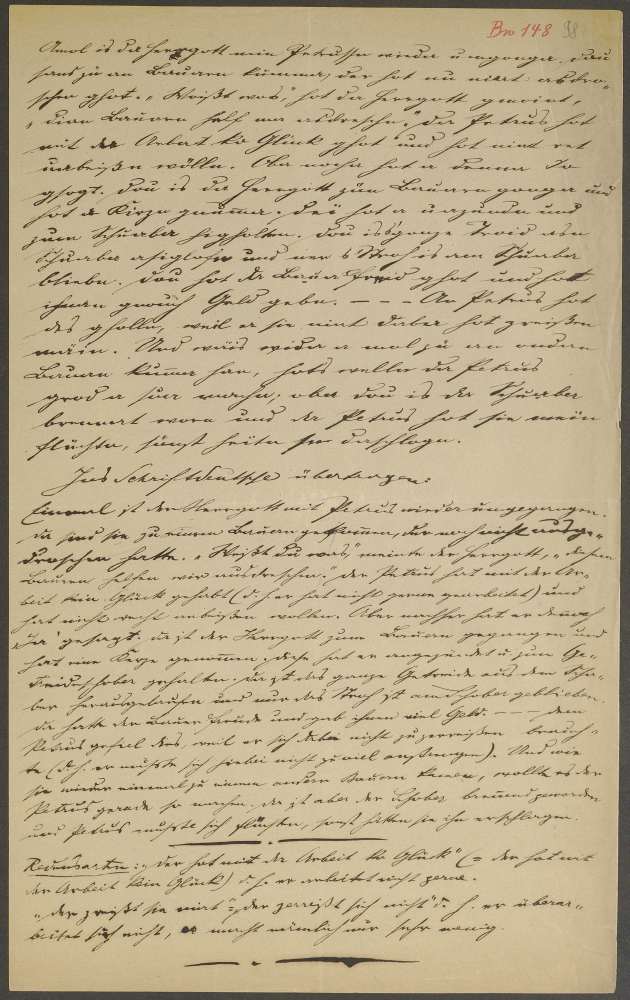 Bw 148 98
Amol is da Herrgott mim Petrussn wieda umganga. Dau
sand zu an Bauern kumma, der hot nu niat asdro-
schn ghot. „Woißt was" hot da Herrgott gmoint,
„dian Bauern helf ma asdreschn." Da Petrus hot
mit der Arbat ko Glück ghot und hot niat ret
wölln. Oba nocha hot a denna Jo
gsogt. Dou is da Herrgott zum Bauern ganga und
hot a Kirzn gnumma. Dei hot a unzundn und
zum Schuaba highaltn. Dou is's ganze Troid asn
Schuaba und ner s Stroh is am Schuaba
bliebn. Dou hot da Baua Freid ghot und hot
ihnan gnouch Geld gebn. — — — An Petrus hot
des gfolln, weil er sie niat dabei hot zreißn
. Und wäis wida a mol zu an andern
Bauern kumma han, hots welln da Petrus
grod a sua macha; oba dou is da Schuaba
brennat worn und da Petrus hot sie
flüchtn, sunst heitn daschlogn.
Ins Schriftdeutsche übertragen:
Einmal ist der Herrgott mit Petrus wieder umgegangen.
Da sind sie zu einem Bauern gekommen, der noch nicht ausge-
droschen hatte. „Weißt du was", meinte der Herrgott, „diesem
Bauern helfen wir ausdreschen." Der Petrus hat mit der Ar-
beit kein Glück gehabt (d. h. er hat nicht gerne gearbeitet) und
hat nicht recht anbeißen wollen. Aber nachher hat er dennoch
„Ja" gesagt. Da ist der Herrgott zum Bauern gegangen und
hat eine Kerze genommen. Diese hat er angezündet u. zum Ge-
treideschober gehalten. Da ist das ganze Getreide aus dem Scho-
ber herausgelaufen und nur das Stroh ist am Schober geblieben.
Da hatte der Bauer Freude und gab ihnen viel Geld. — — — Dem
Petrus gefiel das, weil er sich dabei nicht zu zerreißen brauch-
te (d. h. er mußte sich hiebei nicht zuviel anstrengen). Und wie
sie wieder einmal zu einem andern Bauern kamen, wollte es der
Petrus gerade so machen. Da ist aber der Schober brennend geworden
und Petrus mußte sich flüchten, sonst hätten sie ihn erschlagen.
Redensarten: „Der hot mit da Arbeit ko Glück" (= der hat mit
der Arbeit kein Glück) d. h. er arbeitet nicht gerne.
„Der zreißt sie niat" = „der zerreißt sich nicht" d. h. er überar-
beitet sich nicht, er macht nämlich nur sehr wenig.